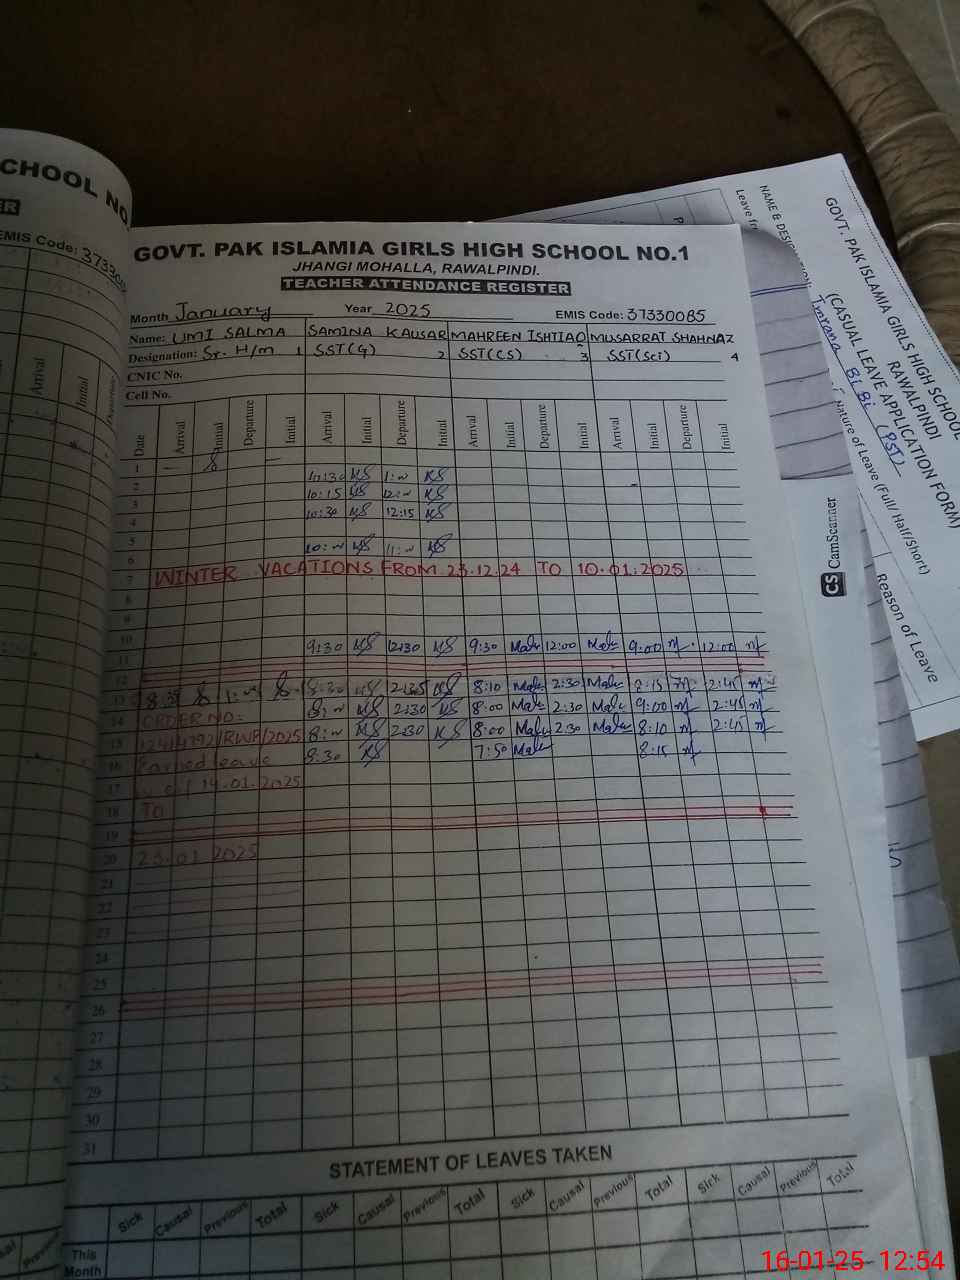 CHOOL NO
ER
EMIS Code: 373300
Arrival
Initial
GOVT. PAK ISLAMIA GIRLS HIGH SCHOOL NO.1
JHANGI MOHALLA, RAWALPINDI.
TEACHER ATTENDANCE REGISTER
Month January Year 2025 EMIS Code: 37330085
Name: UMI SALMA SAMINA KAUSAR MAHREEN ISHTIAQ MUSARRAT SHAHNAZ
Designation: Sr. H/m 1 SST(G) 2 SST(CS) 3 SST(Sci) 4
CNIC No.
Cell No.
Date Arrival Initial Departure Initial Arrival Initial Departure Initial Arrival Initial Departure Initial Arrival Initial Departure Initial
1
2 10:30 KS 1:~ KS
3 10:15 KS 12:~ KS
4 10:30 KS 12:15 KS
5
6 10:~ KS 11:~ KS
7 WINTER VACATIONS FROM 23.12.24 TO 10.01.2025
8
9
10
11 9:30 KS 12:30 KS 9:30 12:00 9:00 12:00
12
13 8:30 KS 2:35 KS 8:10 2:30 8:15 2:45
14 ORDER NO: 8:~ KS 2:30 KS 8:00 2:30 9:00 2:45
15 /RWP/2025 8:~ KS 2:30 KS 8:00 2:30 8:10 2:45
16 Earned leave 8:30 KS 7:50 8:15
17 w.e.f 14.01.2025
18 TO
19
20 23.01.2025
21
22
23
24
25
26
27
28
29
30
31
STATEMENT OF LEAVES TAKEN
Sick Causal Previous Total Sick Causal Previous Total Sick Causal Previous Total
This Month
GOVT. PAK ISLAMIA GIRLS HIGH SCHOOL
RAWALPINDI
(CASUAL LEAVE APPLICATION FORM)
NAME & DESIGNATION:
Imrana BiBi (PST)
Leave fr
Nature of Leave (Full/ Half/Short)
Reason of Leave
CS CamScanner
16-01-25 12:54